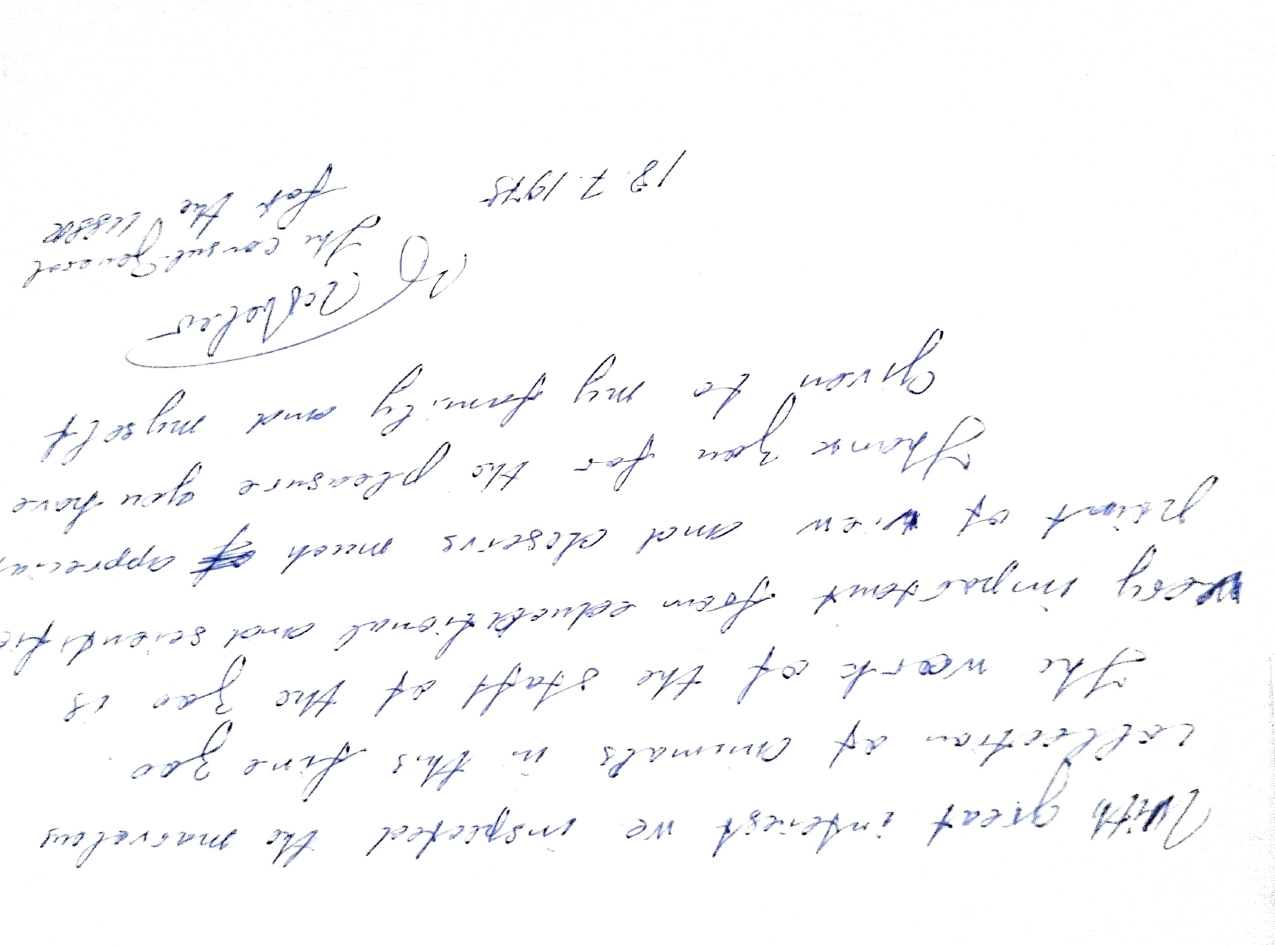 With great interest we inspected the marvelous
collection of animals in this fine zoo.
The work of the staff of the zoo is
very important from educational and scientific
point of view and deserve much
Thank you for the pleasure you have
given to my family and myself
The consul-general
for the USSR
18.7.1975